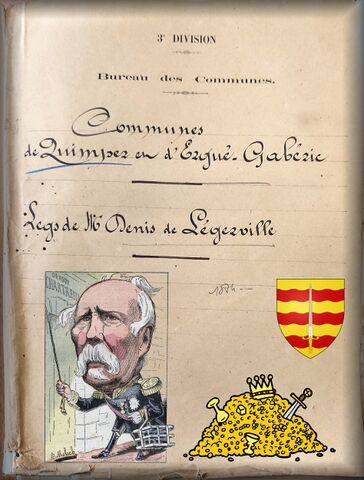 3e DIVISION
Bureau des Communes.
Communes
de Quimper en d'Ergué-Gabéric
Legs de Mr Denis de Légerville